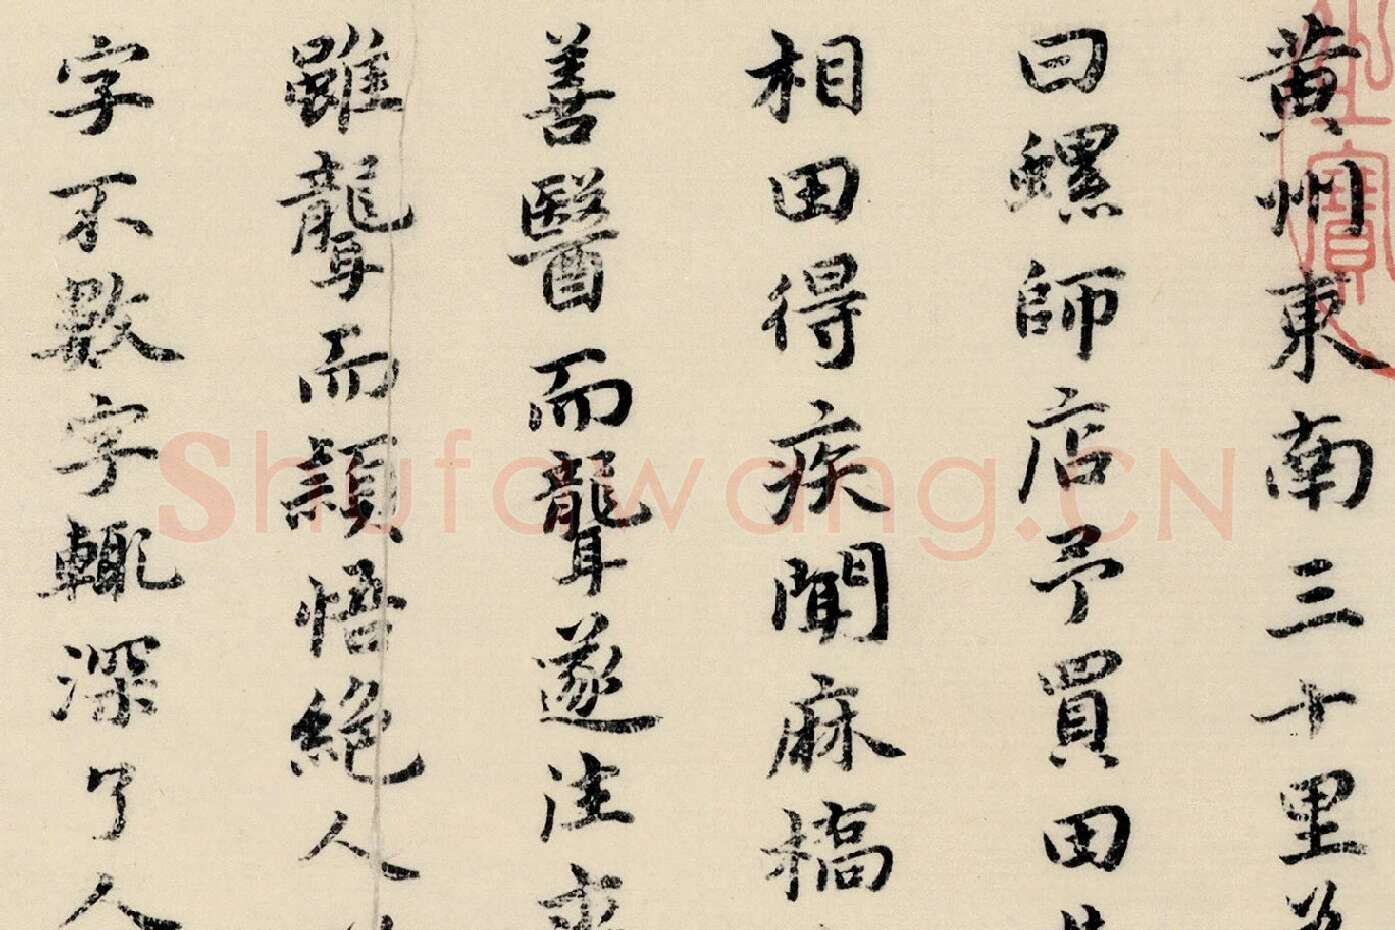 黄州東南三十里
曰螺師店予買田
相田得疾聞麻橋
善醫而聾遂往求
雖聾而穎悟絕人
字不數字輒深了人
Shufawang.CN